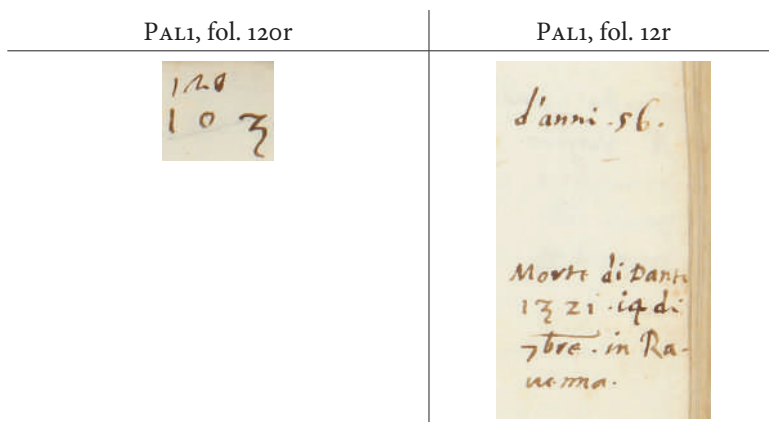 PAL1, fol. 120r
PAL1, fol. 12r
120
103
d'anni .56.
Morte di Dante
1321 .i4 di
7bre . in Ra-
uenna.